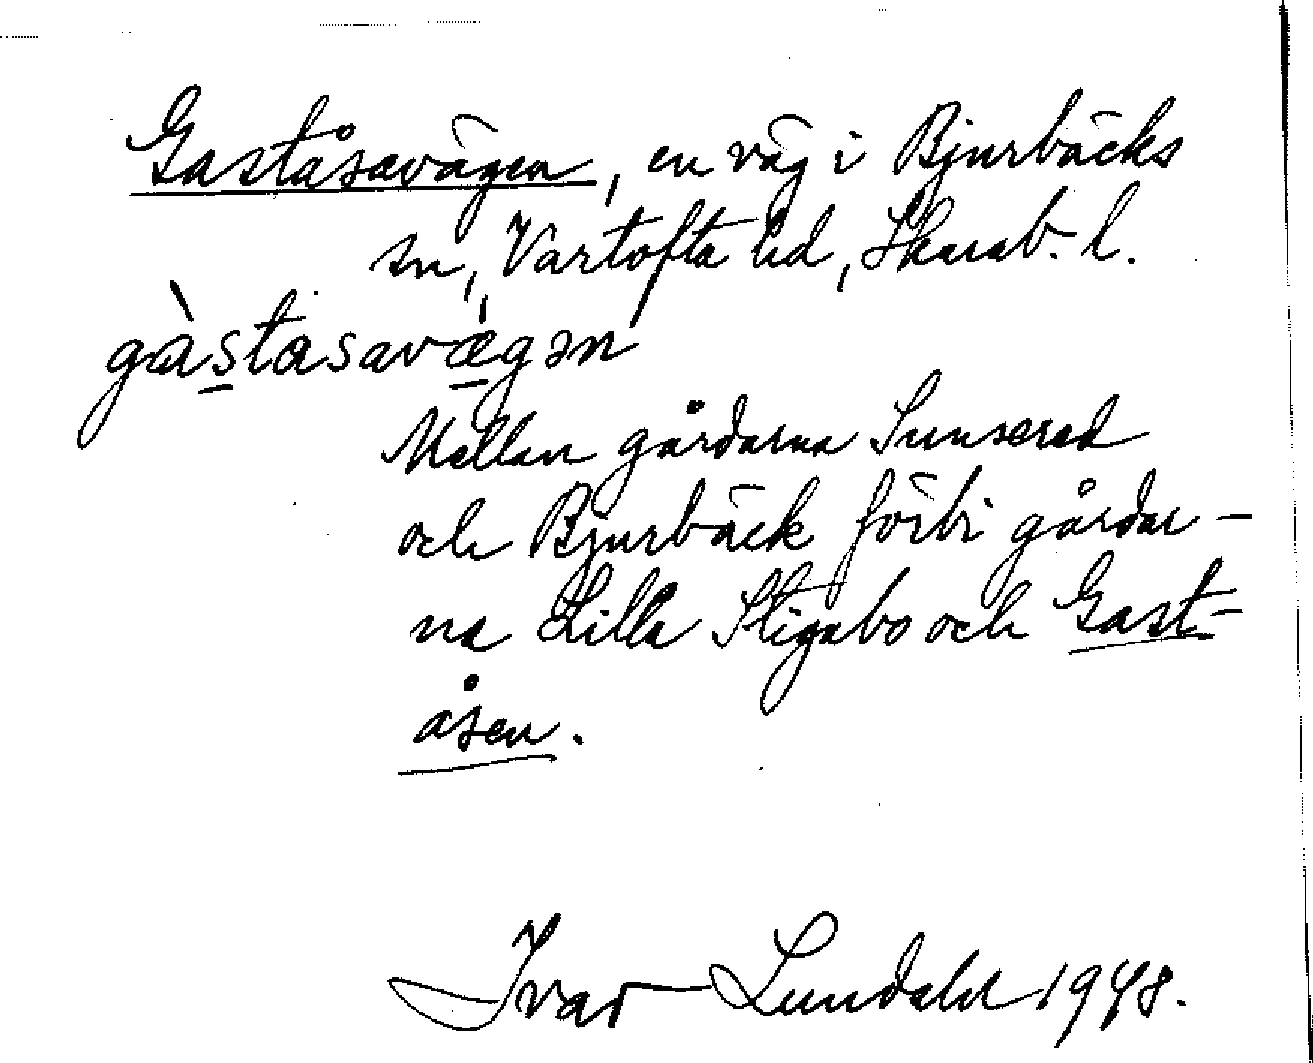 Gaståsavägen, en väg i Bjurbäcks
sn, Vartofta hd, Skarab. l.
gàstasavǽgən
Mellan gårdarna Sunnerad
och Bjurbäck förbi gårdar-
na Lilla Stigabo och Gast-
åsen.
Ivar Lundahl 1948.